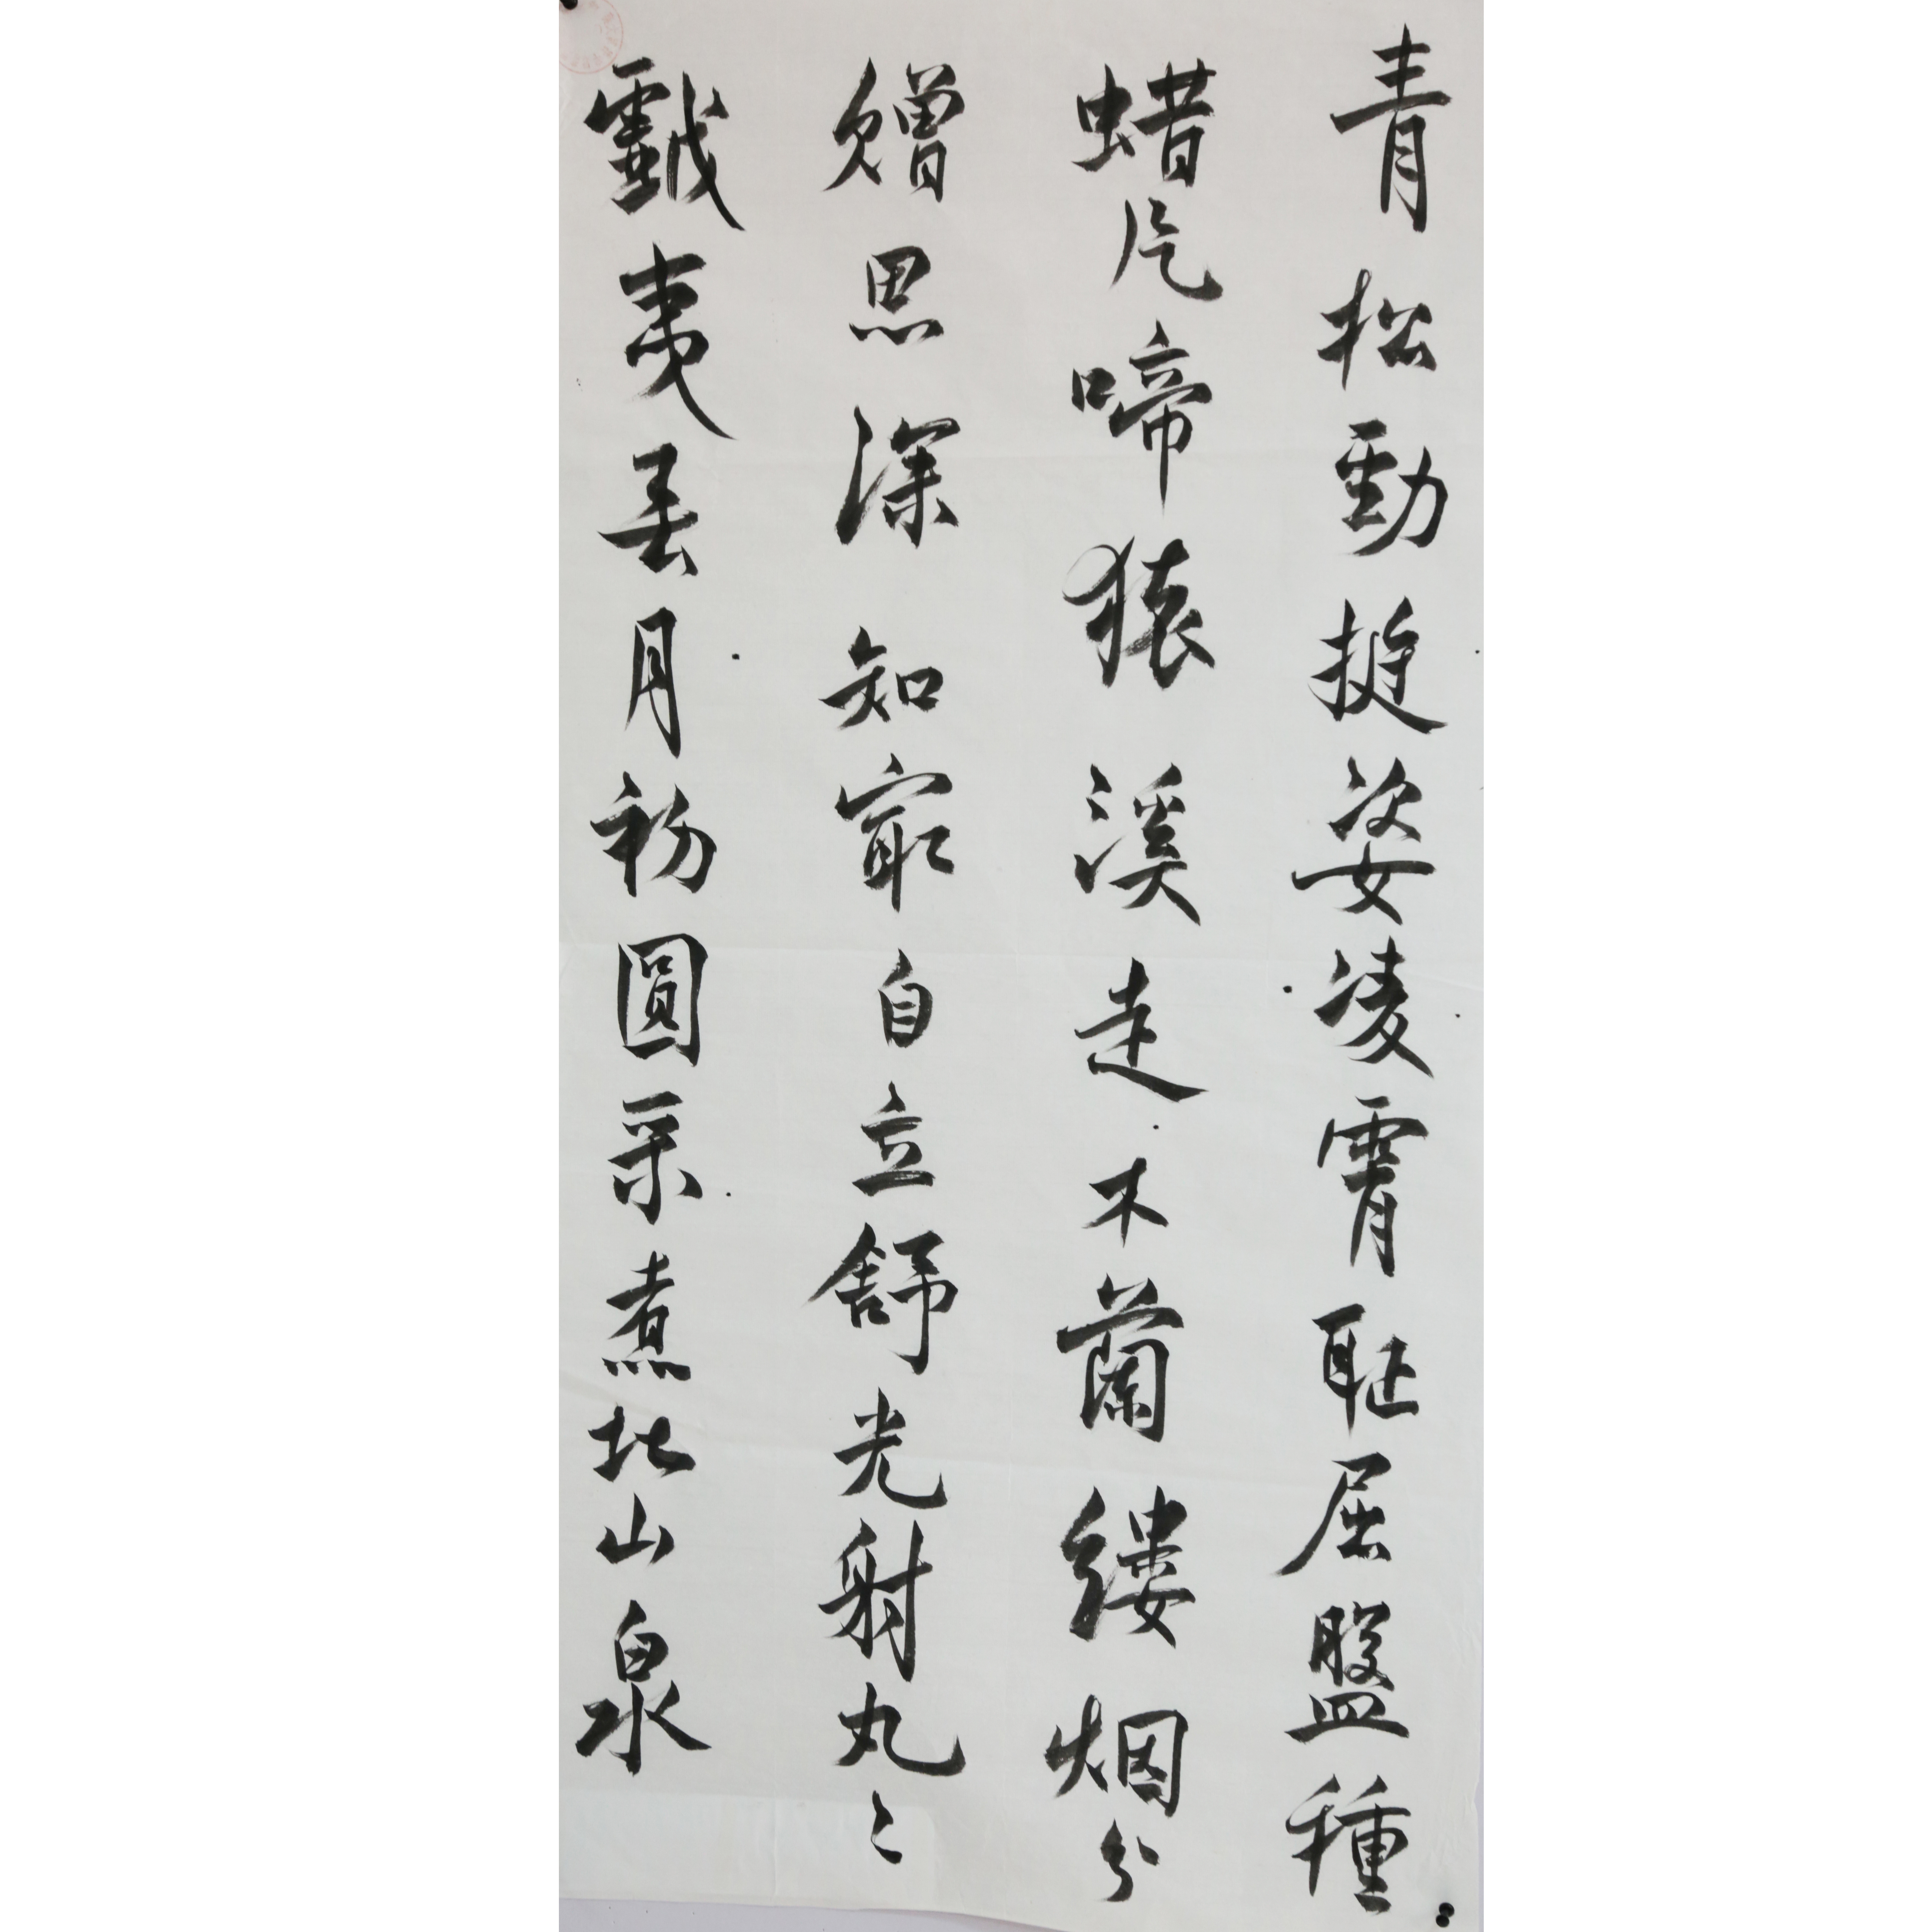 青松勁挺姿凌霄耻屈盤種
蜡片啼猿溪走木蘭縷烟分
贈思深知最自立舒光射丸〻
戲夷弄月初圓采煮北山泉